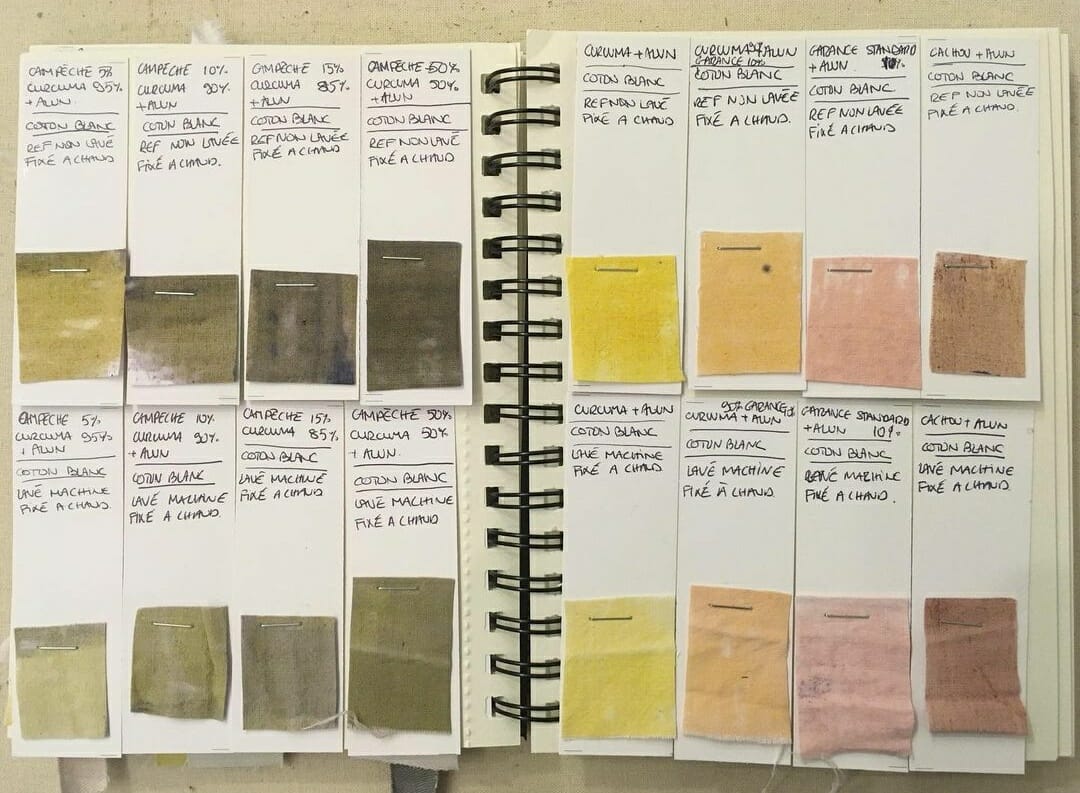 CAMPÊCHE 5%
CURCUMA 95%
+ ALUN.
COTON BLANC
REF NON LAVÉ
FIXÉ A CHAUD
CAMPÊCHE 10%
CURCUMA 90%
+ ALUN
COTON BLANC
REF NON LAVÉE
FIXÉ A CHAUD.
CAMPÊCHE 15%
CURCUMA 85%
+ ALUN
COTON BLANC
REF NON LAVÉE
FIXÉ A CHAUD.
CAMPÊCHE 50%
CURCUMA 50%
+ ALUN
COTON BLANC
REF NON LAVÉ
FIXÉ A CHAUD
CURCUMA + ALUN
COTON BLANC
REF NON LAVÉ
FIXÉ A CHAUD
CURCUMA + ALUN
GARANCE 10%
COTON BLANC
REF NON LAVÉE
FIXÉ A CHAUD.
GARANCE STANDARD
+ ALUN 10%
COTON BLANC
REF NON LAVÉE
FIXÉ A CHAUD.
CACHOU + ALUN
COTON BLANC
REF NON LAVÉE
FIXÉ A CHAUD.
CAMPÊCHE 5%
CURCUMA 95%
+ ALUN
COTON BLANC
LAVÉ MACHINE
FIXÉ A CHAUD.
CAMPÊCHE 10%
CURCUMA 90%
+ ALUN
COTON BLANC
LAVÉ MACHINE
FIXÉ A CHAUD.
CAMPÊCHE 15%
CURCUMA 85%
COTON BLANC
LAVÉ MACHINE
FIXÉ A CHAUD
CAMPÊCHE 50%
CURCUMA 50%
+ ALUN.
COTON BLANC
LAVÉ MACHINE
FIXÉ A CHAUD.
CURCUMA + ALUN
COTON BLANC
LAVÉ MACHINE
FIXÉ A CHAUD
90% GARANCE
CURCUMA + ALUN
COTON BLANC
LAVÉ MACHINE
FIXÉ À CHAUD.
GARANCE STANDARD
+ ALUN 10%
COTON BLANC
LAVÉ MACHINE
FIXÉ A CHAUD.
CACHOU + ALUN
COTON BLANC
LAVÉ MACHINE
FIXÉ A CHAUD.